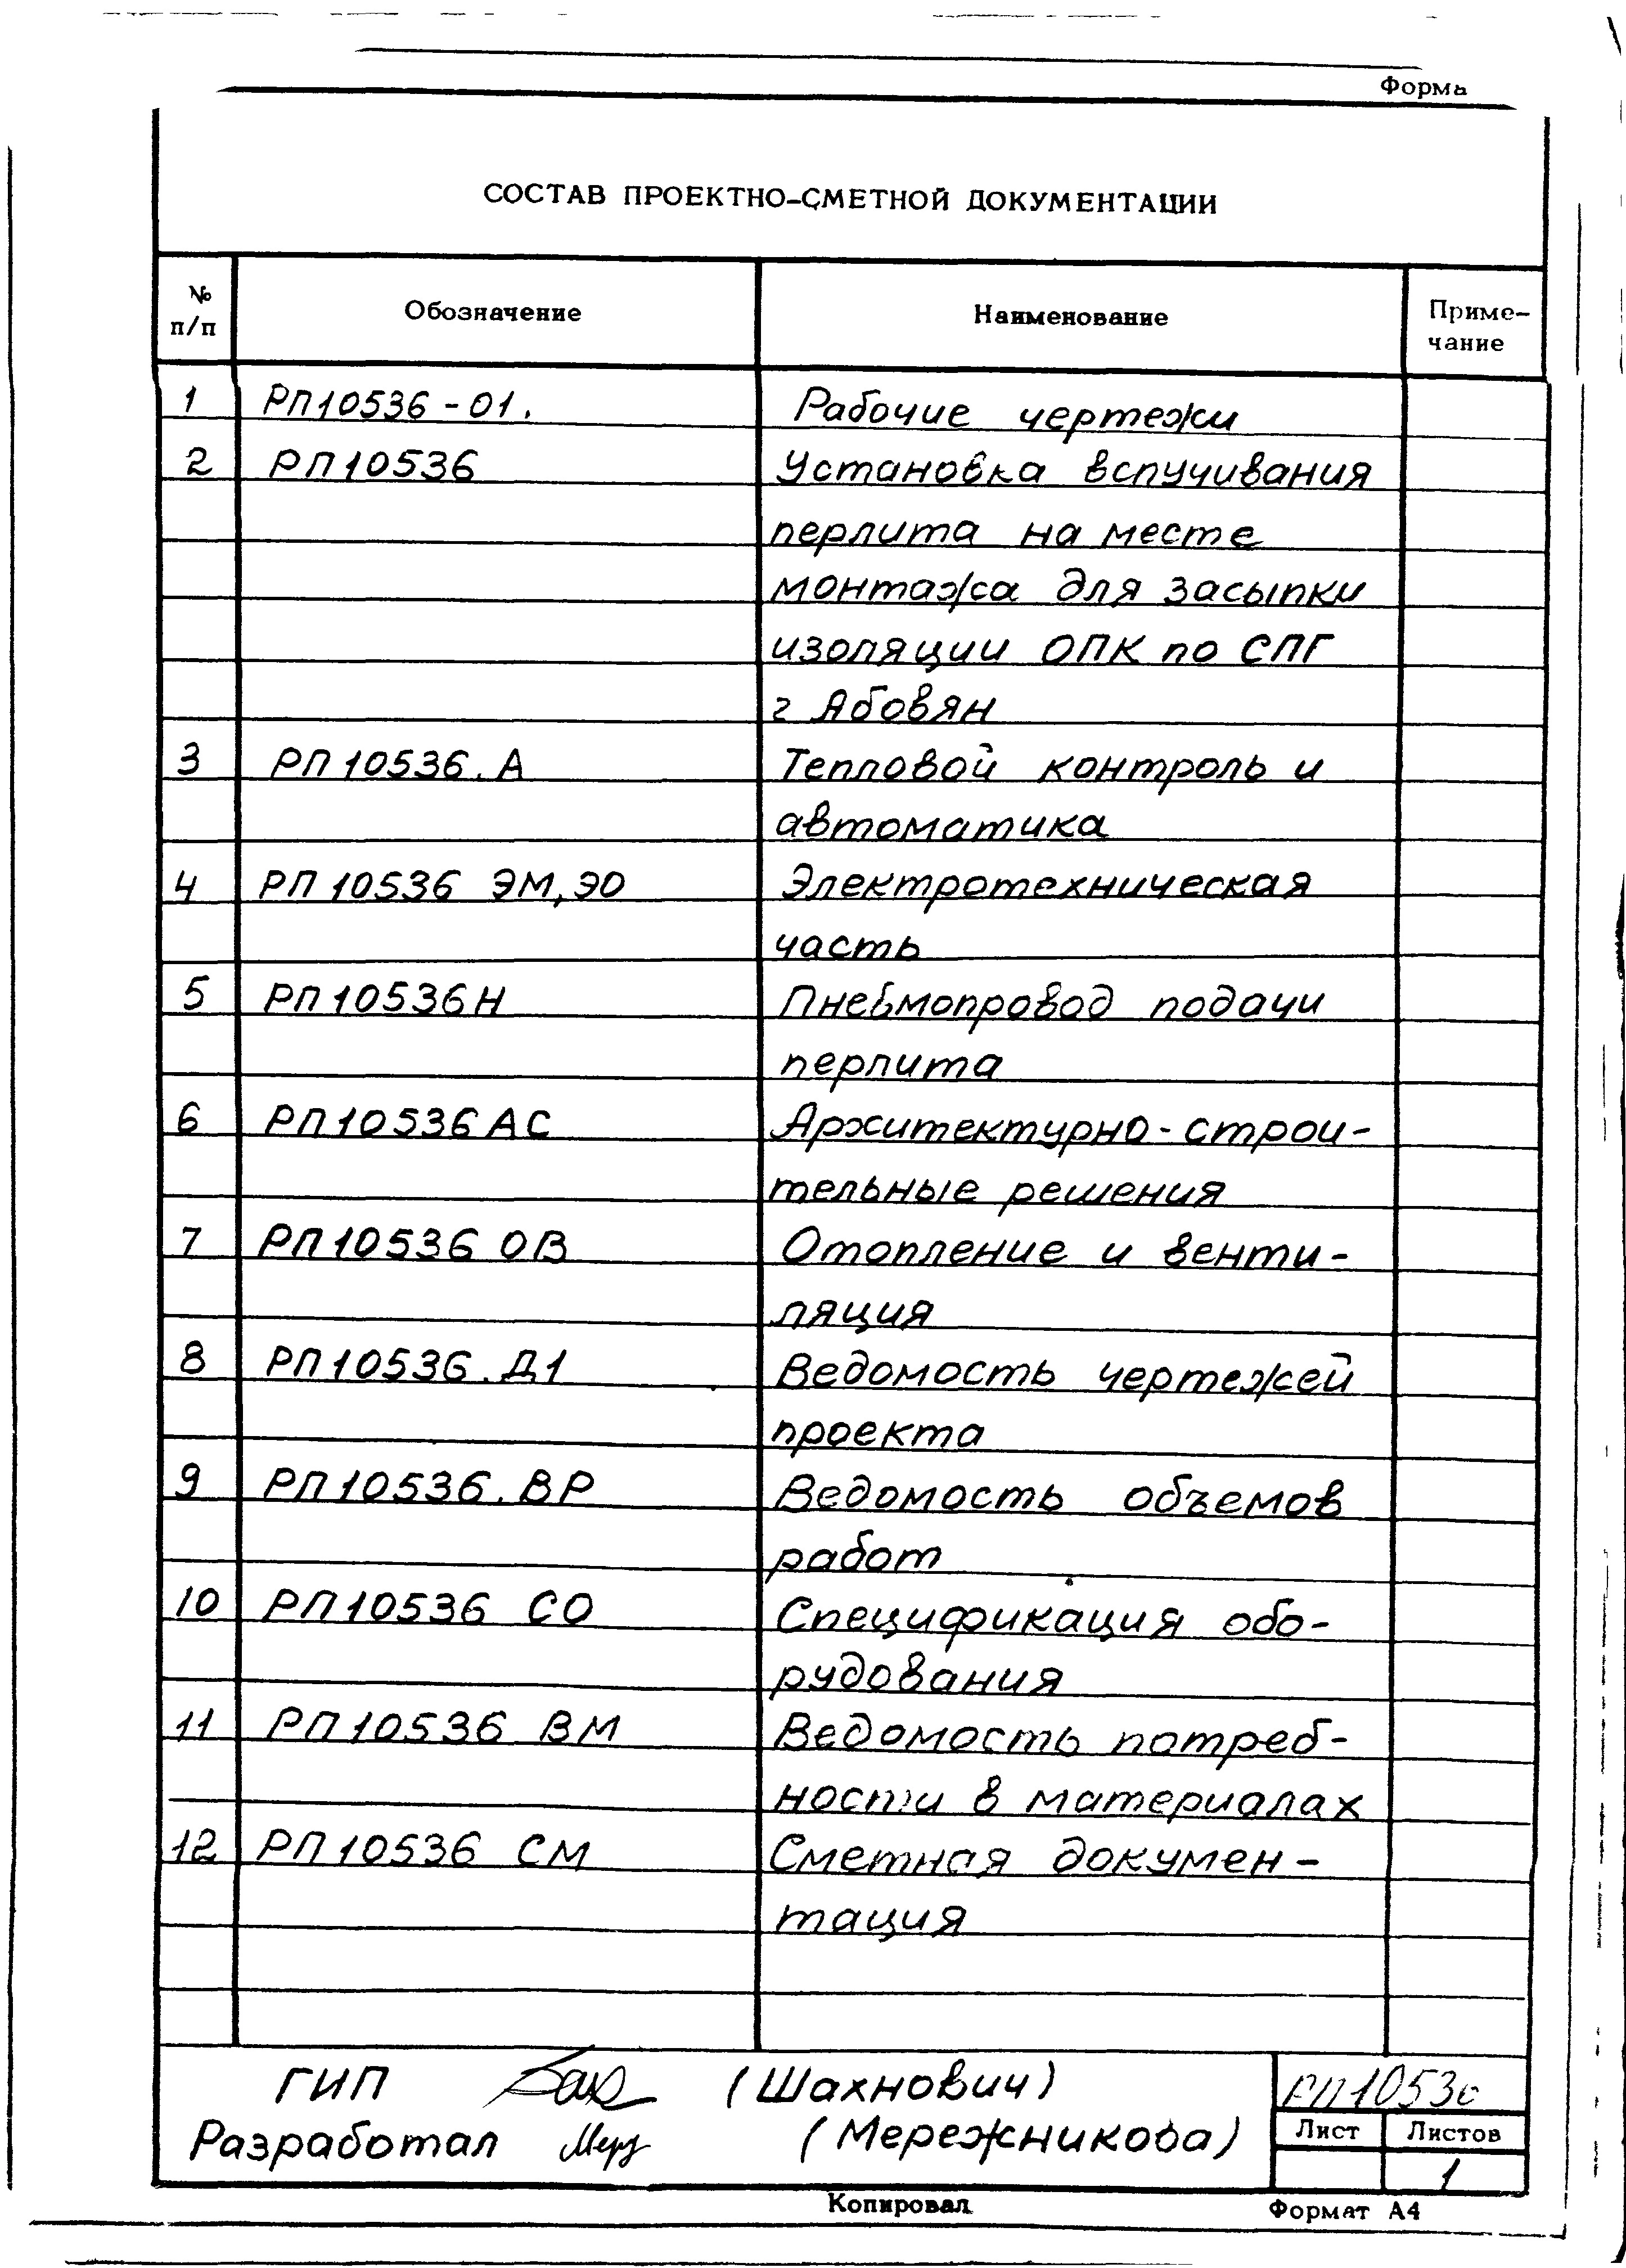 Форма
СОСТАВ ПРОЕКТНО-СМЕТНОЙ ДОКУМЕНТАЦИИ
№ п/п Обозначение Наименование Приме-
чание
1 РП10536-01. Рабочие чертежи
2 РП10536 Установка вспучивания
перлита на месте
монтажа для засыпки
изоляции ОПК по СПГ
г Абовян
3 РП10536.А Тепловой контроль и
автоматика
4 РП10536 ЭМ,ЭО Электротехническая
часть
5 РП10536Н Пневмопровод подачи
перлита
6 РП10536АС Архитектурно-строи-
тельные решения
7 РП10536 ОВ Отопление и венти-
ляция
8 РП10536.Д1 Ведомость чертежей
проекта
9 РП10536.ВР Ведомость объемов
работ
10 РП10536 СО Спецификация обо-
рудования
11 РП10536 ВМ Ведомость потреб-
ности в материалах
12 РП10536 СМ Сметная докумен-
тация
ГИП (Шахнович) РП10536
Разработал (Мережникова) Лист Листов
1
Копировал Формат А4